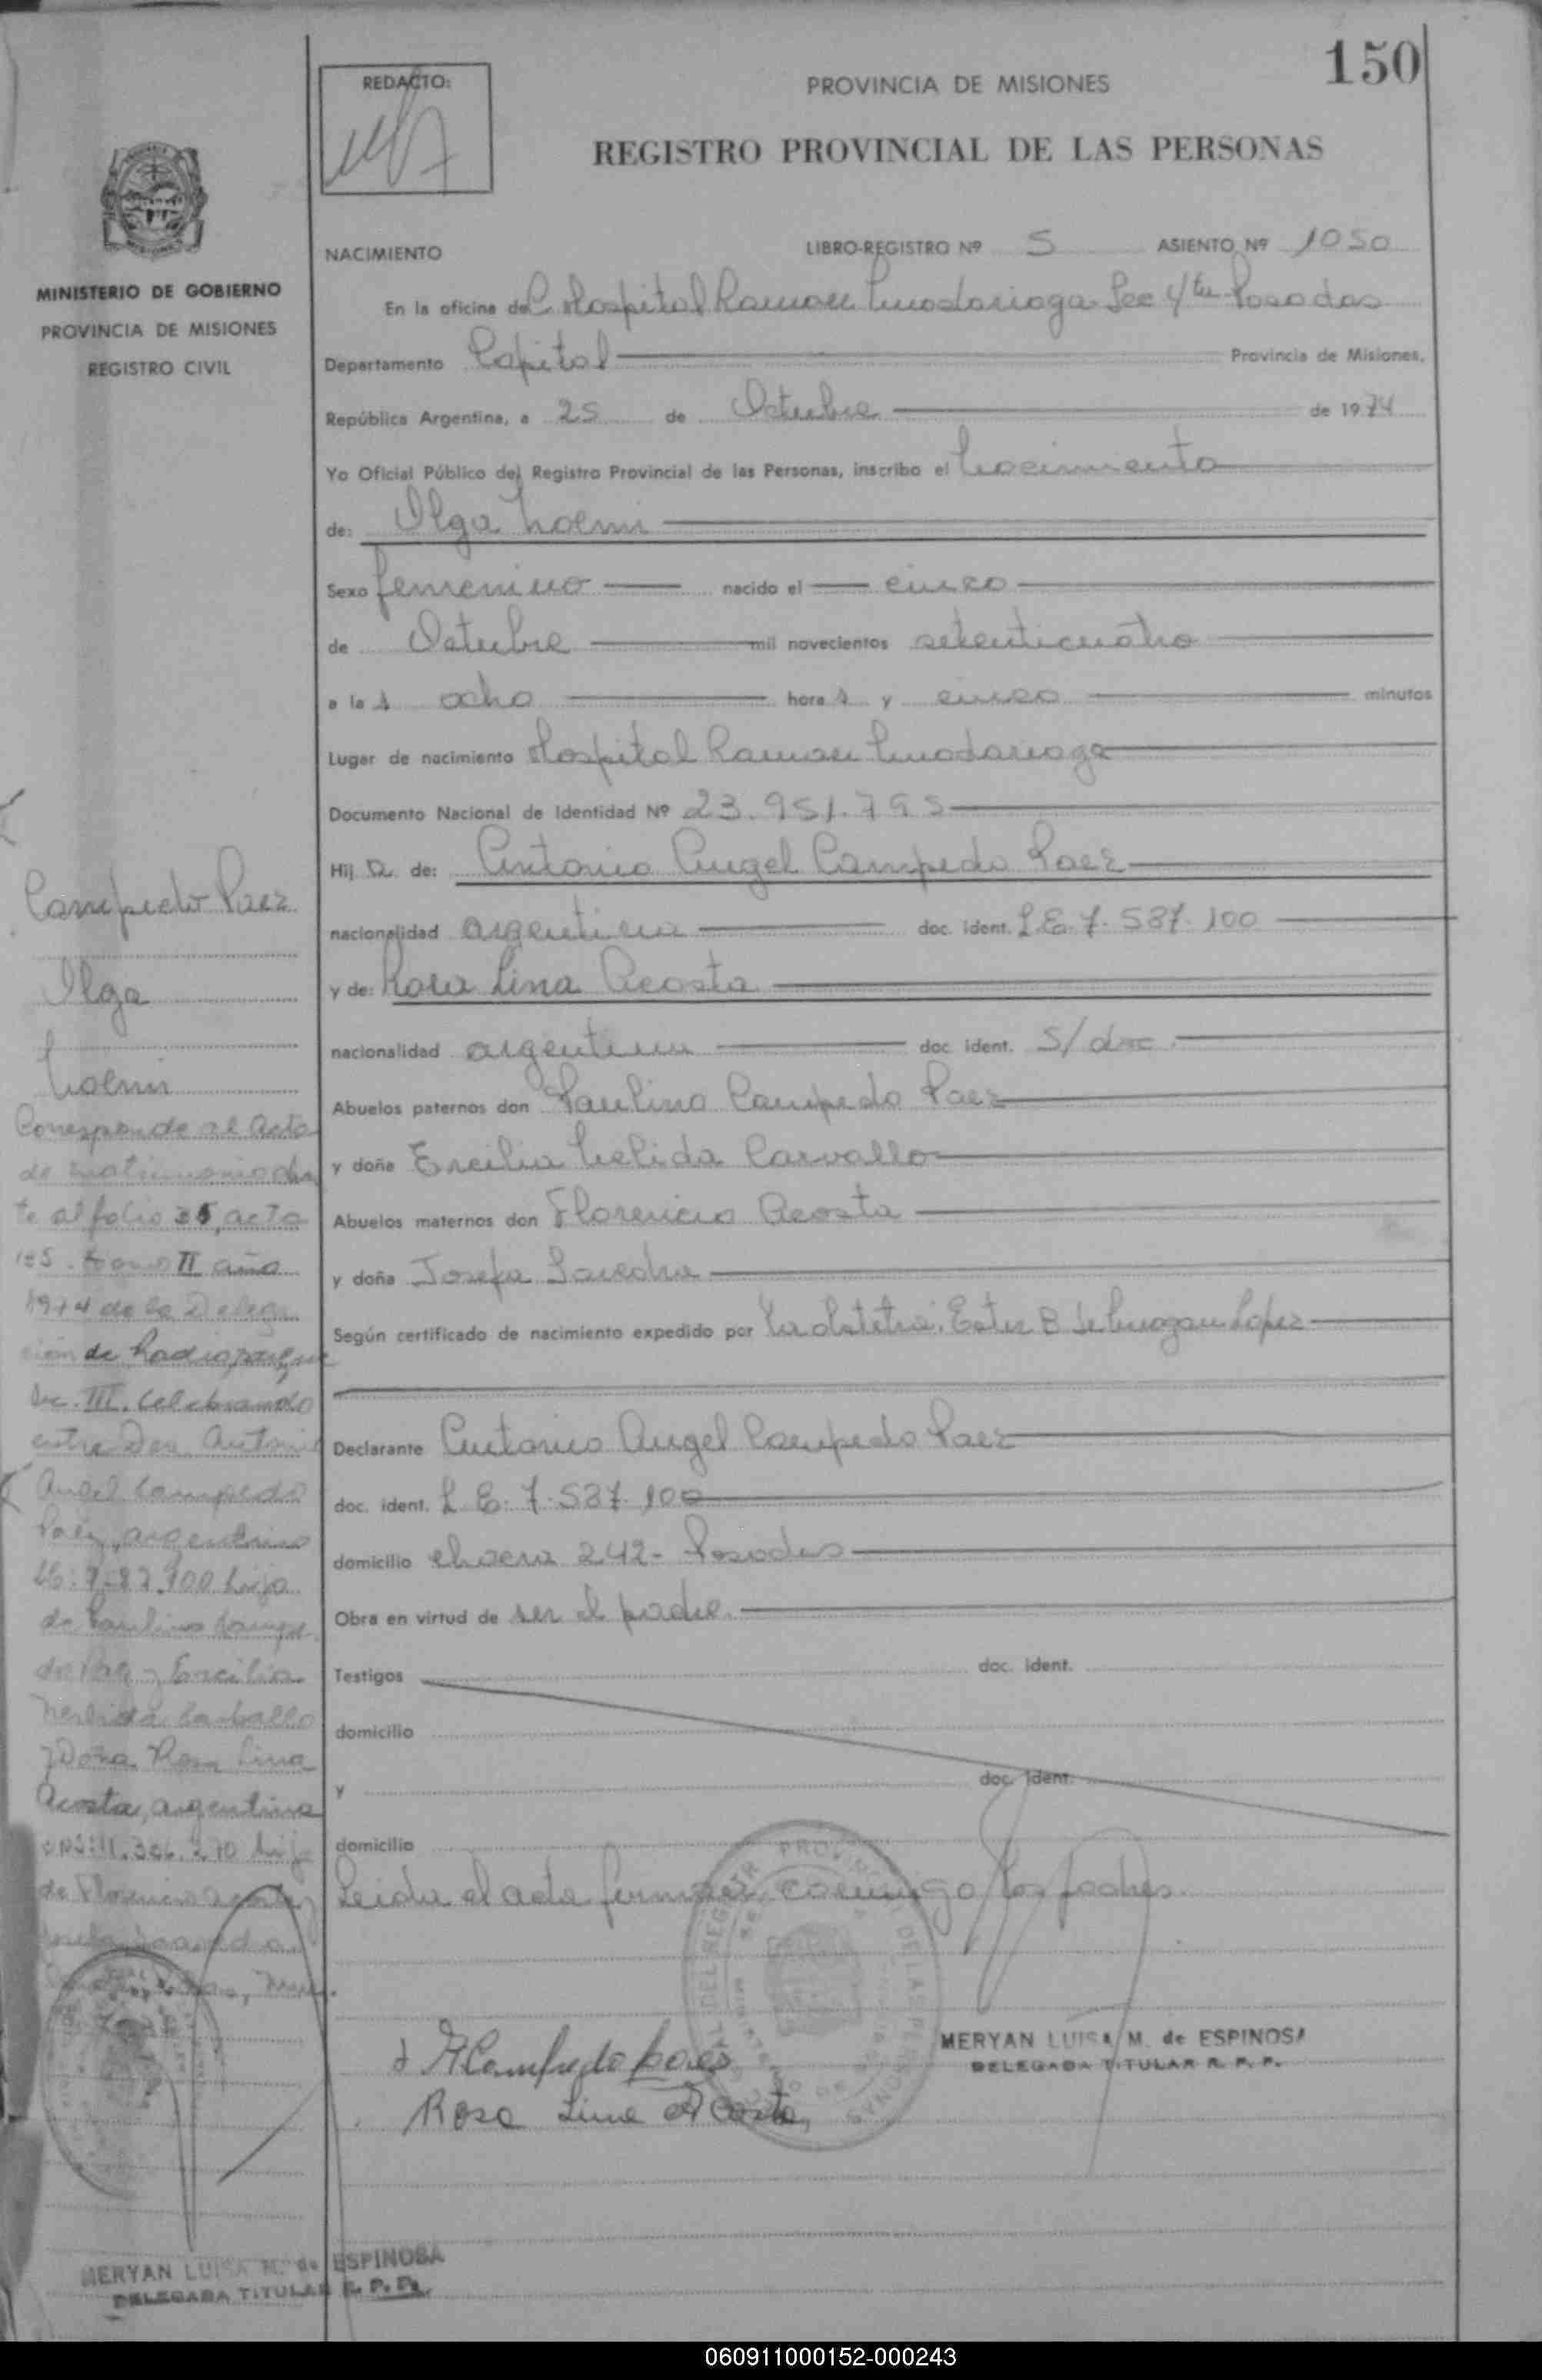 150
REDACTO:
PROVINCIA DE MISIONES
REGISTRO PROVINCIAL DE LAS PERSONAS
MINISTERIO DE GOBIERNO
PROVINCIA DE MISIONES
REGISTRO CIVIL
NACIMIENTO LIBRO-REGISTRO Nº 5 ASIENTO Nº 1050
En la oficina del Hospital Ramon Madariaga Sec 4ta Posadas
Departamento Capital Provincia de Misiones,
República Argentina, a 25 de Octubre de 1974
Yo Oficial Público del Registro Provincial de las Personas, inscribo el Nacimiento
de: Olga Noemi
Sexo femenino nacido el cinco
de Octubre mil novecientos setenticuatro
a las ocho horas y cinco minutos
Lugar de nacimiento Hospital Ramon Madariaga
Documento Nacional de Identidad Nº 23.951.795
Hija de: Antonio Angel Campedo Paez
nacionalidad argentina doc. ident. L.E. 7.587.100
y de: Rosa Lina Acosta
nacionalidad argentina doc. ident. S/doc
Abuelos paternos don Paulino Campedo Paez
y doña Ercilia Nelida Carvallo
Abuelos maternos don Florencio Acosta
y doña Josefa Savedra
Según certificado de nacimiento expedido por la obstetra: Ester B de Lopez
Declarante Antonio Angel Campedo Paez
doc. ident. L.E. 7.587.100
domicilio 242- Posadas
Obra en virtud de ser el padre.
Testigos doc. ident.
domicilio
y doc. ident.
domicilio
Leida el acta firman conmigo los padres.
Campedo Paez
Rosa Lina Acosta
MERYAN LUISA M. de ESPINOSA
DELEGADA TITULAR R. P. P.
Campedo Paez
Olga
Noemi
Corresponde al Acta
de matrimonio
te al folio 35, acta
tomo II año
1974 de la Delega
ción de
Sec. III. Celebrado
entre Don Antonio
Angel Campedo
Paez, argentino
hijo
de Paulino Campe
do Paez y Ercilia
Nelida Carballo
y Doña Rosa Lina
Acosta, argentina
hija
de Florencio Acosta y
MERYAN LUISA M. de ESPINOSA
DELEGADA TITULAR R. P. P.
060911000152-000243